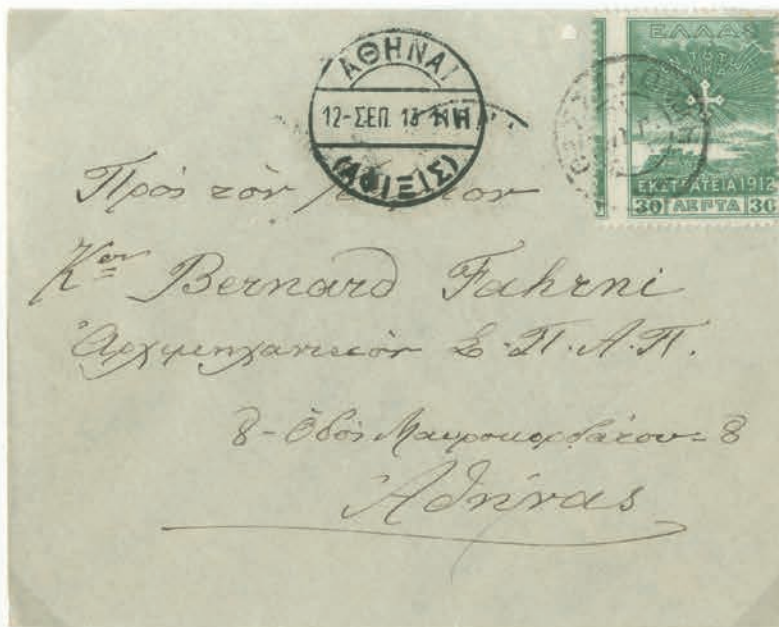 ΑΘΗΝΑΙ
12-ΣΕΠ. 13
(ΑΦΙΞΙΣ)
ΕΛΛΑΣ
ΕΝ ΤΟΥΤΩ
ΕΚΣΤΡΑΤΕΙΑ 1912
30 ΛΕΠΤΑ 30
Πρὸς τὸν
Κον Bernard Fahrni
Ἀρχιμηχανικὸν Σ. Π. Α. Π.
8 - Ὁδὸς Μαυροκορδάτου - 8
Ἀθήνας